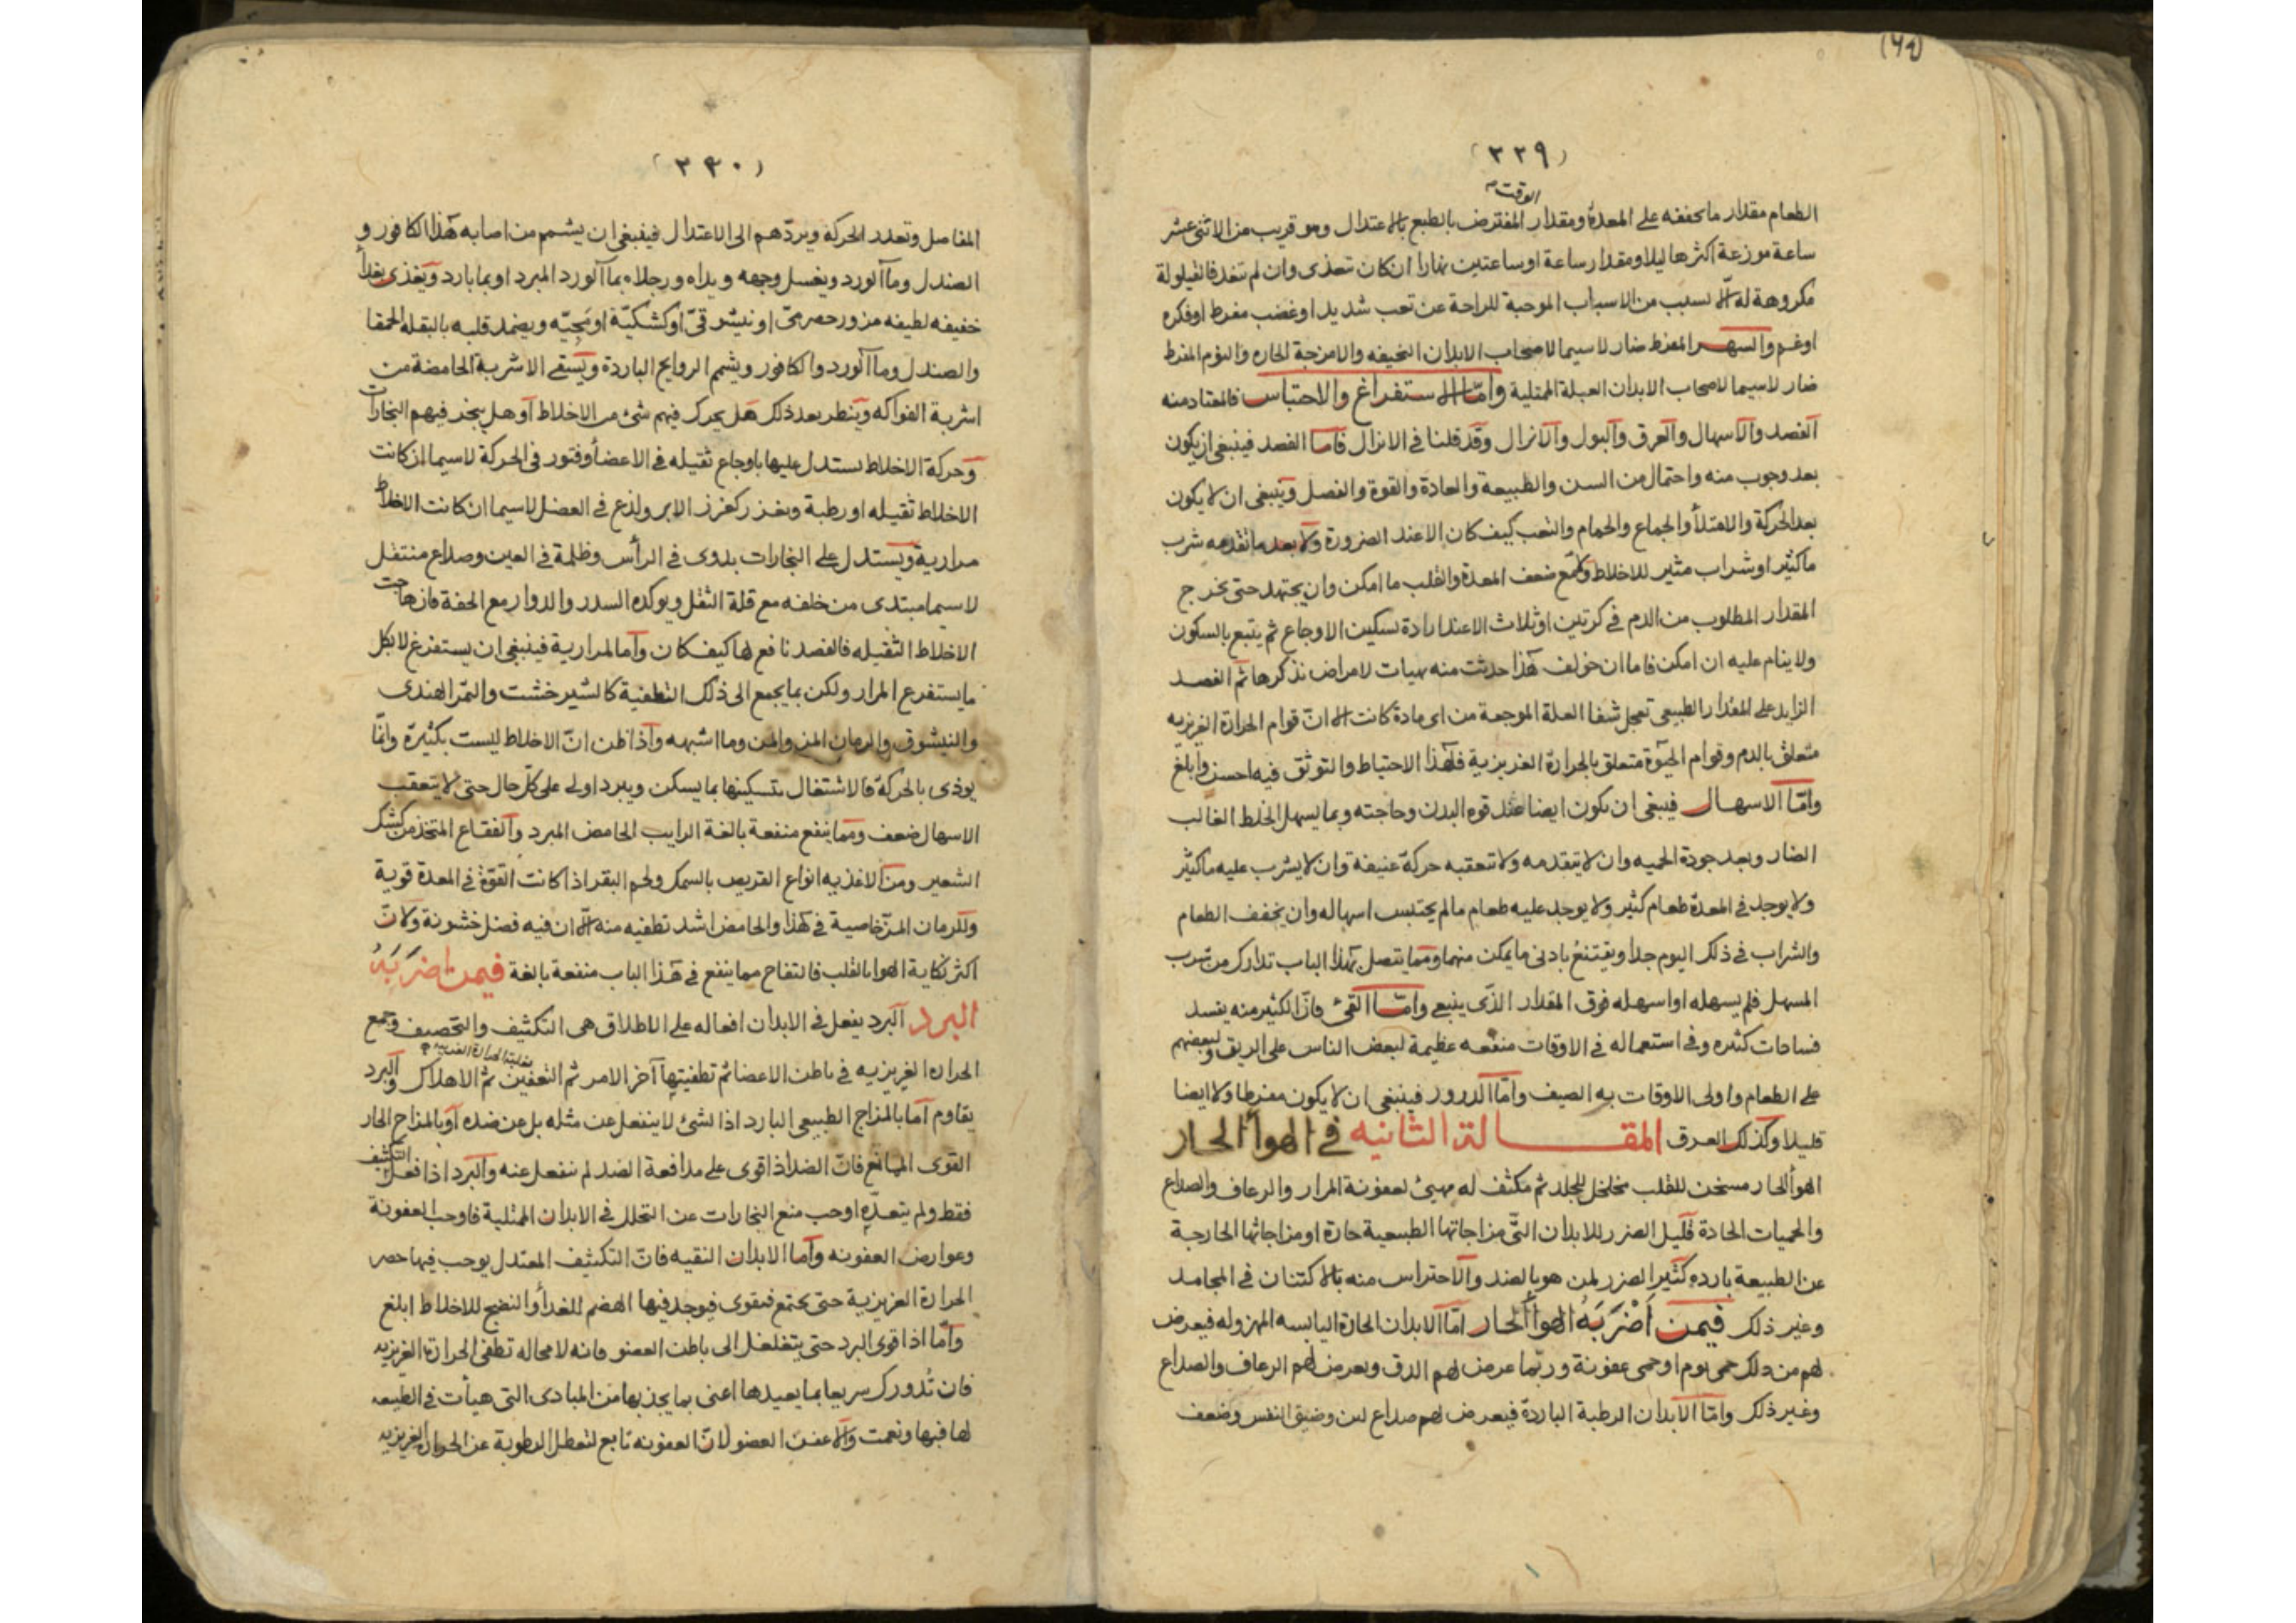 (٣٢٩)
الوقت
الطعام مقدار ما يخففه على المعدة ومقدار المفترض بالطبع بالاعتدال وهو قريب من الاثنى عشر
ساعة موزعة اكثرها ليلا ومقدار ساعة او ساعتين نهارا ان كان تغذى وان لم تغد فالقيلولة
مكروهة له الا لسبب من الاسباب الموجبة للراحة عن تعب شديد او غضب مفرط او فكره
او غم والسهر المفرط ضار لاسيما لاصحاب الابدان النحيفه والامزجة الحاره والنوم المفرط
ضار لاسيما لاصحاب الابدان العبلة الممتلية واما الاستفراغ والاحتباس فالمعتاد منه
الفصد والاسهال والعرق والبول والانزال وقد قلنا فى الانزال فاما الفصد فينبغى ان يكون
بعد وجوب منه واحتمال من السن والطبيعة والعادة والقوة والفصل وينبغى ان لا يكون
بعد الحركة والامتلأ والجماع والحمام والتعب كيف كان الا عند الضرورة ولا بعد ما تقدمه شرب
ماكثير او شراب مثير للاخلاط ولا مع ضعف المعدة والقلب ما امكن وان يجتهد حتى يخرج
المقدار المطلوب من الدم فى كرتين او ثلاث الا عند ارادة تسكين الاوجاع ثم يتبع بالسكون
ولا ينام عليه ان امكن فاما ان خولف هذا حدثت منه مهيات لامراض نذكرها ثم الفصد
الزايد على المقدار الطبيعى تعجل شفا العلة الموجعة من اى مادة كانت الا ان قوام الحرارة الغريزيه
متعلق بالدم وقوام الحيوة متعلق بالحرارة الغريزية فلهذا الاحتياط والتوثق فيه احسن وابلغ
واما الاسهال فينبغى ان يكون ايضا عند قوه البدن وحاجته وبما يسهل الخلط الغالب
الضار وبعد جودة الحميه وان لا يتقدمه ولا تتعقبه حركة عنيفة وان لا يشرب عليه ماكثير
ولا يوجد فى المعدة طعام كثير ولا يوجد عليه طعام مالم يحتبس اسهاله وان يخفف الطعام
والشراب فى ذلك اليوم جدا ويقتنع بادنى ما يمكن منهما ومما يتصل بهذا الباب تدارك من شرب
المسهل فلم يسهله او اسهله فوق المقدار الذى ينبغى واما القئ فان الكثير منه يفسد
فسادات كثيره وفى استعماله فى الاوقات منفعه عظيمة لبعض الناس على الريق ولبعضهم
على الطعام واولى الاوقات به الصيف واما الدرور فينبغى ان لا يكون مفرطا ولا ايضا
قليلا وكذلك العرق المقالة الثانيه فى الهوأ الحار
الهوأ الحار مسخن للقلب مخلخل للجلد ثم مكثف له مهيئ لعفونة المرار والرعاف والصداع
والحميات الحادة قليل الضرر للابدان التى مزاجاتها الطبيعية حارة او مزاجاتها الخارجة
عن الطبيعة بارده كثير الضرر لمن هو بالضد والاحتراس منه بالاكتنان فى المجامد
وغير ذلك فيمن اضر به الهوا الحار اما الابدان الحارة اليابسه المهزوله فيعرض
لهم من ذلك حمى يوم او حمى عفونة وربما عرض لهم الدق ويعرض لهم الرعاف والصداع
وغير ذلك واما الابدان الرطبة الباردة فيعرض لهم صداع لين وضيق النفس وضعف
(٣٣٠)
المفاصل وتعذر الحركة ويردهم الى الاعتدال فينبغى ان يشمم من اصابه هذا الكافور و
الصندل وما الورد ويغسل وجهه ويداه ورجلاه بما الورد المبرد او بما بارد ويغذى بغذأ
خفيفه لطيفه مزور حصرمى او نيشوقى او كشكية او مجيه ويضمد قلبه بالبقله الحمقا
والصندل وما الورد والكافور ويشم الروايح الباردة ويستقى الاشربة الحامضة من
اشربة الفواكه وينظر بعد ذلك هل يحرك فيهم شئ من الاخلاط او هل يبخر فيهم البخارات
وحركة الاخلاط يستدل عليها باوجاع ثقيله فى الاعضأ وفتور فى الحركة لاسيما ان كانت
الاخلاط ثقيله او رطبة وبغرز كغرز الابر ولذع فى العضل لاسيما ان كانت الاخلاط
مرارية ويستدل على البخارات بدوى فى الرأس وظلمة فى العين وصداع منتقل
لاسيما مبتدى من خلفه مع قلة الثقل ويوكده السدر والدوار مع الخفة فان هاجت
الاخلاط الثقيله فالفصد نافع لها كيف كان واما المرارية فينبغى ان يستفرغ لا بكل
ما يستفرغ المرار ولكن بما يجمع الى ذلك التطفية كالشير خشت والتمر الهندى
والنيشوق والرمان المز والمن وما اشبهه واذا ظن ان الاخلاط ليست بكثيرة وانما
يوذى بالحركة فالاشتغال بتسكينها بما يسكن ويبرد اولى على كل حال حتى لا يتعقب
الاسهال ضعف ومما ينفع منفعة بالغة الرايب الحامض المبرد والفقاع المتخذ من كشك
الشعير ومن الاغذيه انواع القريص بالسمك ولحم البقر اذا كانت القوة فى المعدة قوية
وللرمان المز خاصية فى هذا والحامض اشد تطفيه منه الا ان فيه فضل خشونة ولان
اكثر نكاية الهوا بالقلب فالتفاح مما ينفع فى هذا الباب منفعة بالغة فيمن اضر به
البرد البرد يفعل فى الابدان افعاله على الاطلاق هى التكثيف والتحصيف وجمع
الحرارة الغريزيه فى باطن الاعضا ثم تطفيتها آخر الامر ثم التعفين ثم الاهلاك والبرد
يقاوم اما بالمزاج الطبيعى البارد اذا لشئ لا ينفعل عن مثله بل عن ضده او بالمزاج الحار
القوى الممانع فان الضد اذا قوى على مدافعة الضد لم ينفعل عنه والبرد اذا فعل التكثيف
فقط ولم يتعده اوجب منع البخارات عن التحلل فى الابدان الممتلية فاوجب العفونة
وعوارض العفونه واما الابدان النقيه فان التكثيف المعتدل يوجب فيها حصر
الحرارة الغريزية حتى تجتمع فتقوى فيوجد فيها الهضم للغدأ والنضج للاخلاط ابلغ
واما اذا قوى البرد حتى يتغلغل الى باطن العضو فانه لا محاله تطفى الحرارة الغريزيه
فان تدورك سريعا بما يعيدها اعنى بما يجذبها من المبادى التى هيأت فى الطبيعه
لها فيها ونعمت والا عفن العضو لان العفونه تابع لتعطل الرطوبة عن الحرارة الغريزيه